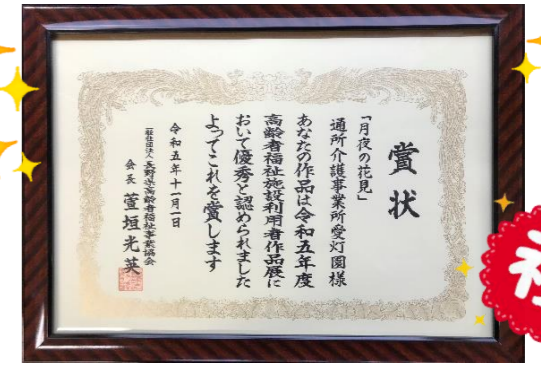 賞状
「月夜の花見」
通所介護事業所愛灯園様
あなたの作品は令和五年度
高齢者福祉施設利用者作品展に
おいて優秀と認められました
よってこれを賞します
令和五年十一月一日
一般社団法人長野県高齢者福祉事業協会
会長 萱垣光英